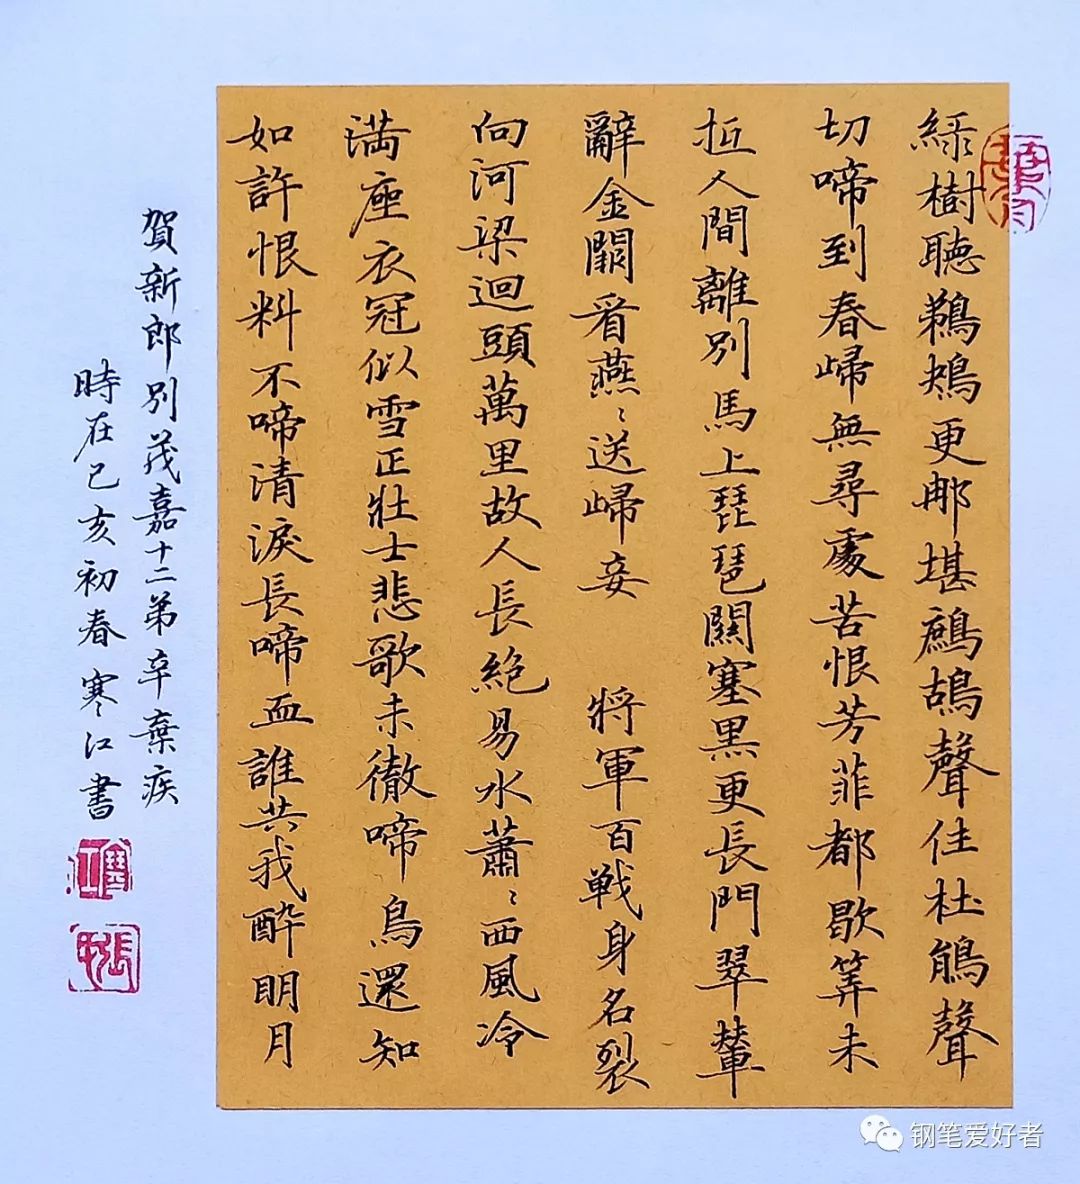 綠樹聽鵜鴂更那堪鷓鴣聲住杜鵑聲
切啼到春歸無尋處苦恨芳菲都歇算未
抵人間離別馬上琵琶關塞黑更長門翠輦
辭金闕看燕〻送歸妾 將軍百戰身名裂
向河梁迴頭萬里故人長絕易水蕭〻西風冷
滿座衣冠似雪正壯士悲歌未徹啼鳥還知
如許恨料不啼清淚長啼血誰共我醉明月
賀新郎別茂嘉十二弟辛棄疾
時在己亥初春寒江書
寒江
張
钢笔爱好者